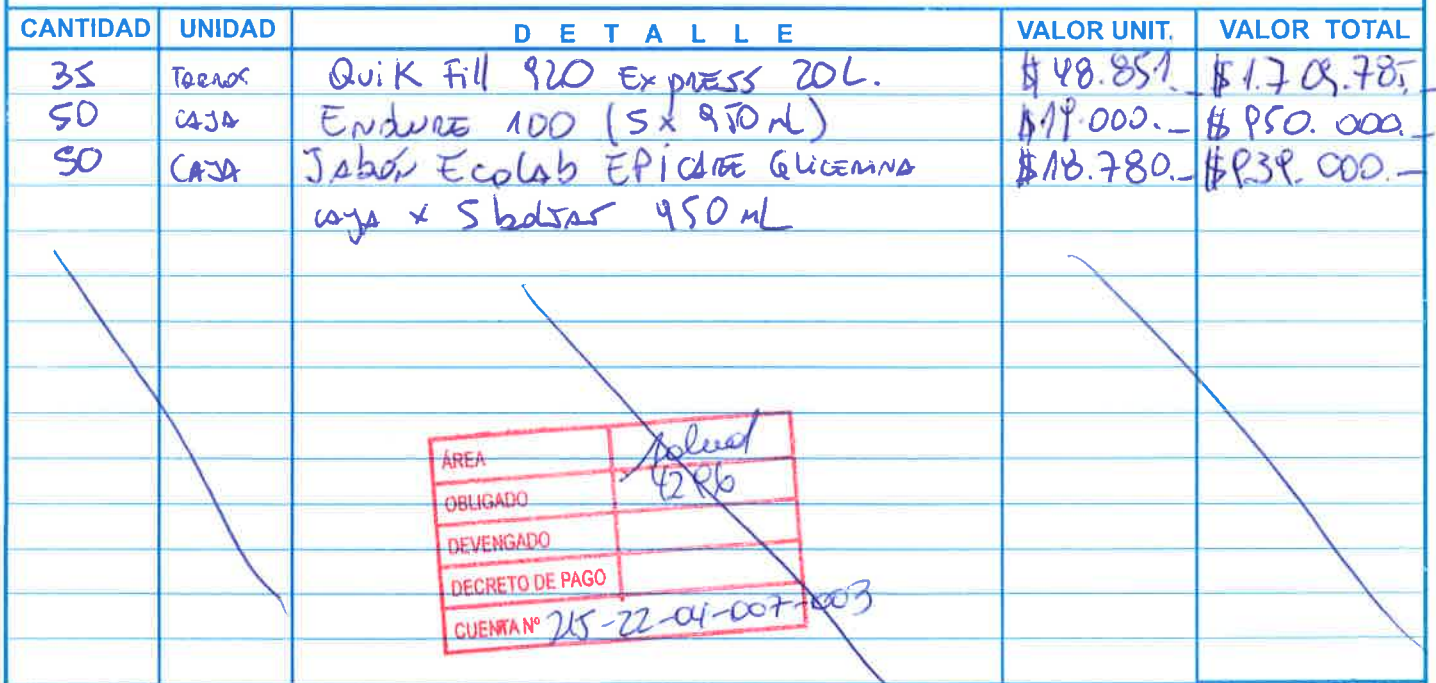 CANTIDAD UNIDAD DETALLE VALOR UNIT. VALOR TOTAL
35 Tarros Quik Fill 920 Express 20L. $48.851.- $1.709.785.-
50 CAJA ENDURE 100 (5x950 ml) $19.000.- $950.000.-
50 CAJA JABÓN Ecolab EPICARE GLICERINA $18.780.- $939.000.-
caja x 5 bolsas 950 ml
ÁREA Salud
OBLIGADO 4296
DEVENGADO
DECRETO DE PAGO
CUENTA Nº 215-22-04-007-003